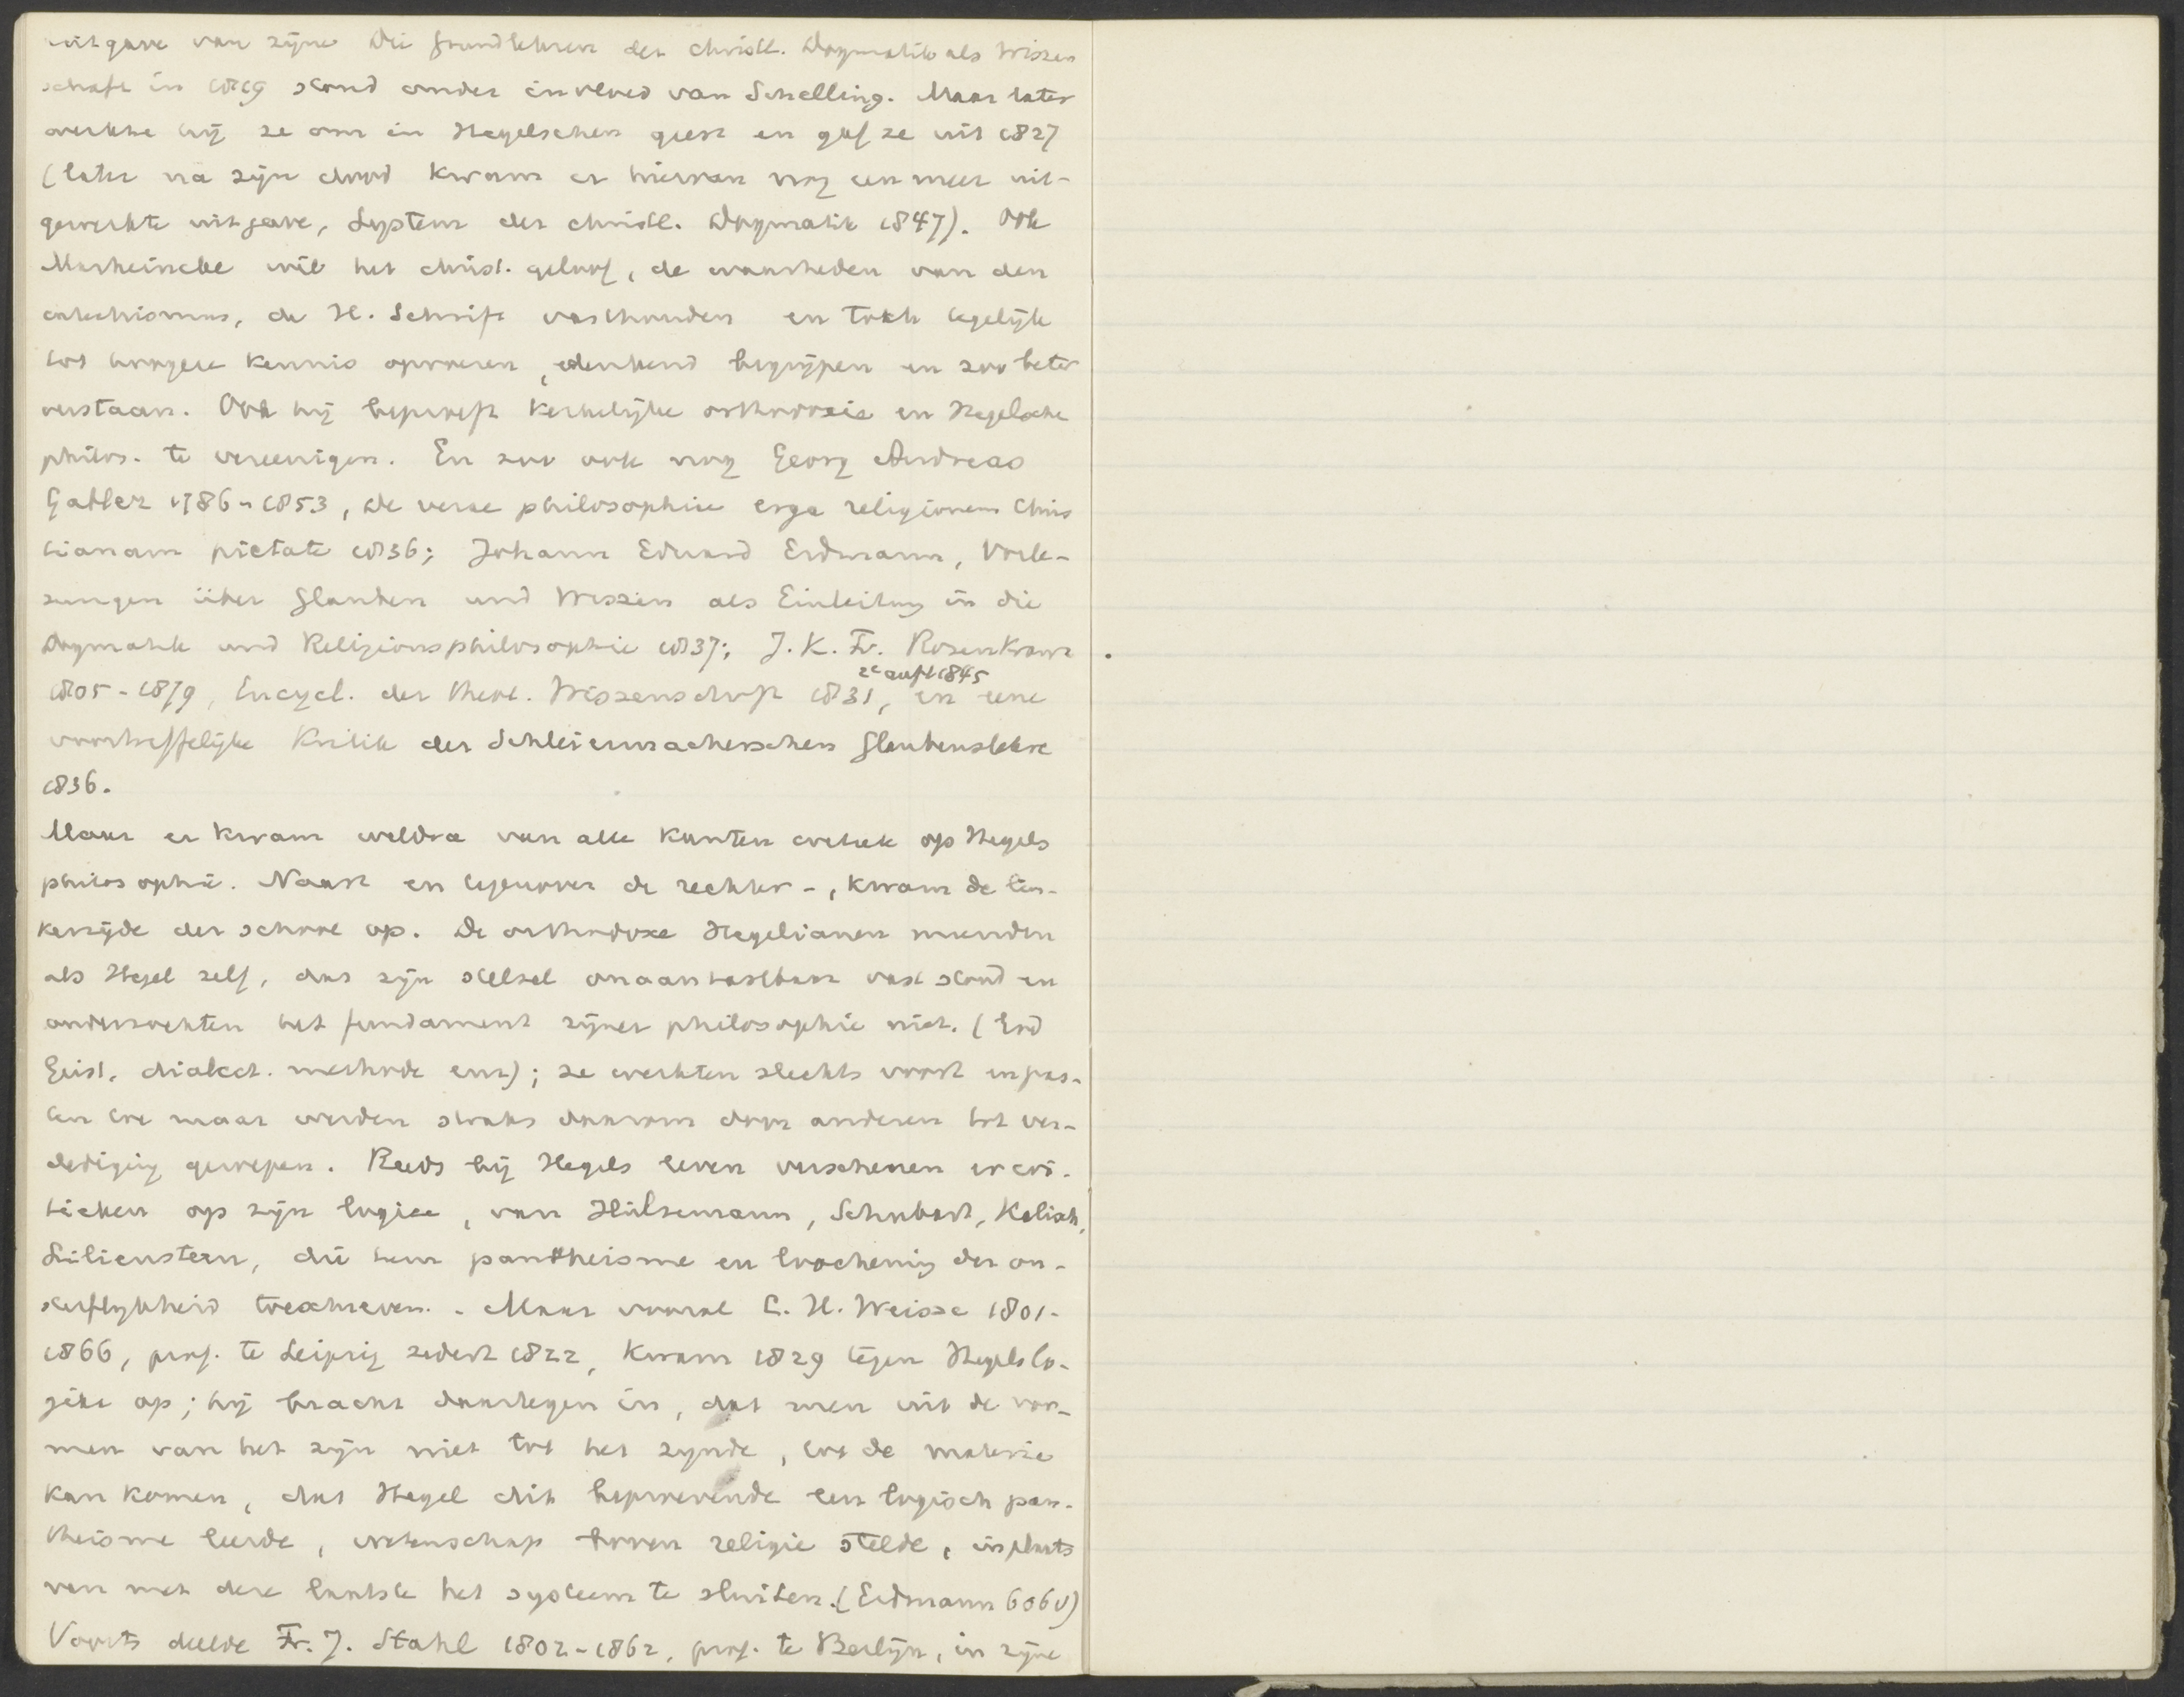 uitgave van zijne Die Grundlehren der christl. Dogmatik als Wissen
schaft in 1819 stond onder invloed van Schelling. Maar later
werkte hij ze om in Hegelschen geest en gaf ze uit 1827
(later na zijn dood kwam er hiervan nog een meer uit-
gewerkte uitgave, System der christl. Dogmatik 1847). Ook
Marheineke wil het christ. geloof, de waarheden van den
catechismus, de H. Schrift vasthouden en toch tegelijk
tot hoogere kennis opvoeren, denkend begrijpen en zoo beter
verstaan. Ook hij beproeft kerkelijke orthodoxie en Hegelsche
philos. te vereenigen. En zoo ook nog Georg Andreas
Gabler 1786-1853, De verae philosophiae erga religionem Chris
tianam pietate 1836; Johann Eduard Erdmann, Vorle-
sungen über Glauben und Wissen als Einleitung in die
Dogmatik und Religionsphilosophie 1837; J.K. Fr. Rosenkranz
2e aufl 1845
1805-1879, Encycl. der theol. Wissenschaft 1831, en eene
voortreffelijke Kritik der Schleiermacherschen Glaubenslehre
1836.
Maar er kwam weldra van alle kanten critiek op Hegels
philosophie. Naast en tegenover de rechter-, kwam de lin-
kerzijde der school op. De orthodoxe Hegelianen meenden
als Hegel zelf, dat zijn stelsel onaantastbaar vast stond en
onderzochten het fundament zijner philosophie niet. (
Geist, dialect. methode enz); ze werkten slechts voort en pas-
ten toe maar werden straks daarom door anderen tot ver-
dediging geroepen. Reeds bij Hegels leven verschenen er cri-
tieken op zijn logica, van Hülsemann, Schubart, Kalisch,
Lilienstern, die hem pantheisme en loochening der on-
sterflijkheid toeschreven. - Maar vooral C. H. Weisse 1801-
1866, prof. te Leipzig sedert 1822, kwam 1829 tegen Hegels lo-
gika op; hij bracht daartegen in, dat men uit de vor-
men van het zijn niet tot het zijnde, tot de materie
kan komen, dat Hegel dit beproevende een logisch pan-
theisme leerde, wetenschap boven religie stelde, in plaats
van met deze laatste het systeem te sluiten. (Erdmann 606v)
Voorts deelde Fr. J. Stahl 1802-1862, prof. te Berlijn, in zijne